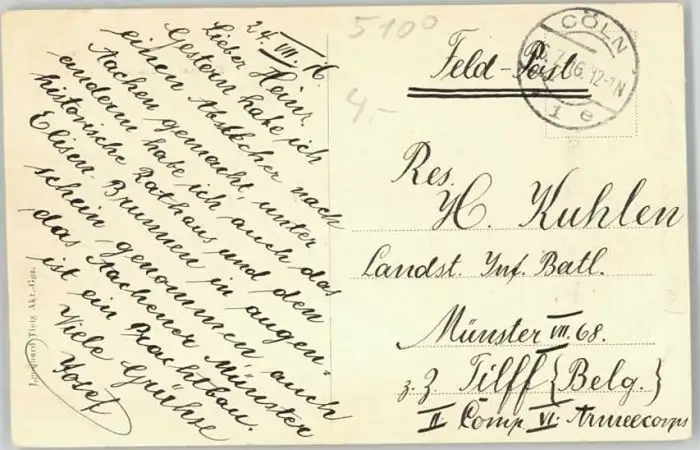 24. VII. 16.
Lieber Heinz,
Gestern habe ich
einen Abstecher nach
Aachen gemacht, unter
anderm habe ich auch das
historische Rathaus und den
Elisen Brunnen in augen-
schein genommen, auch
das Aachener Münster
ist ein Prachtbau.
Viele Grühse
Josef
Tietz Akt.-Ges.
5100
4.-
Feld-Post
CÖLN
12-1N
1 e
Res.
H. Kuhlen
Landst. Inf. Batl.
Münster VII. 68.
z. Z. Tilff {Belg.}
II. Comp. VI. Armeecorps